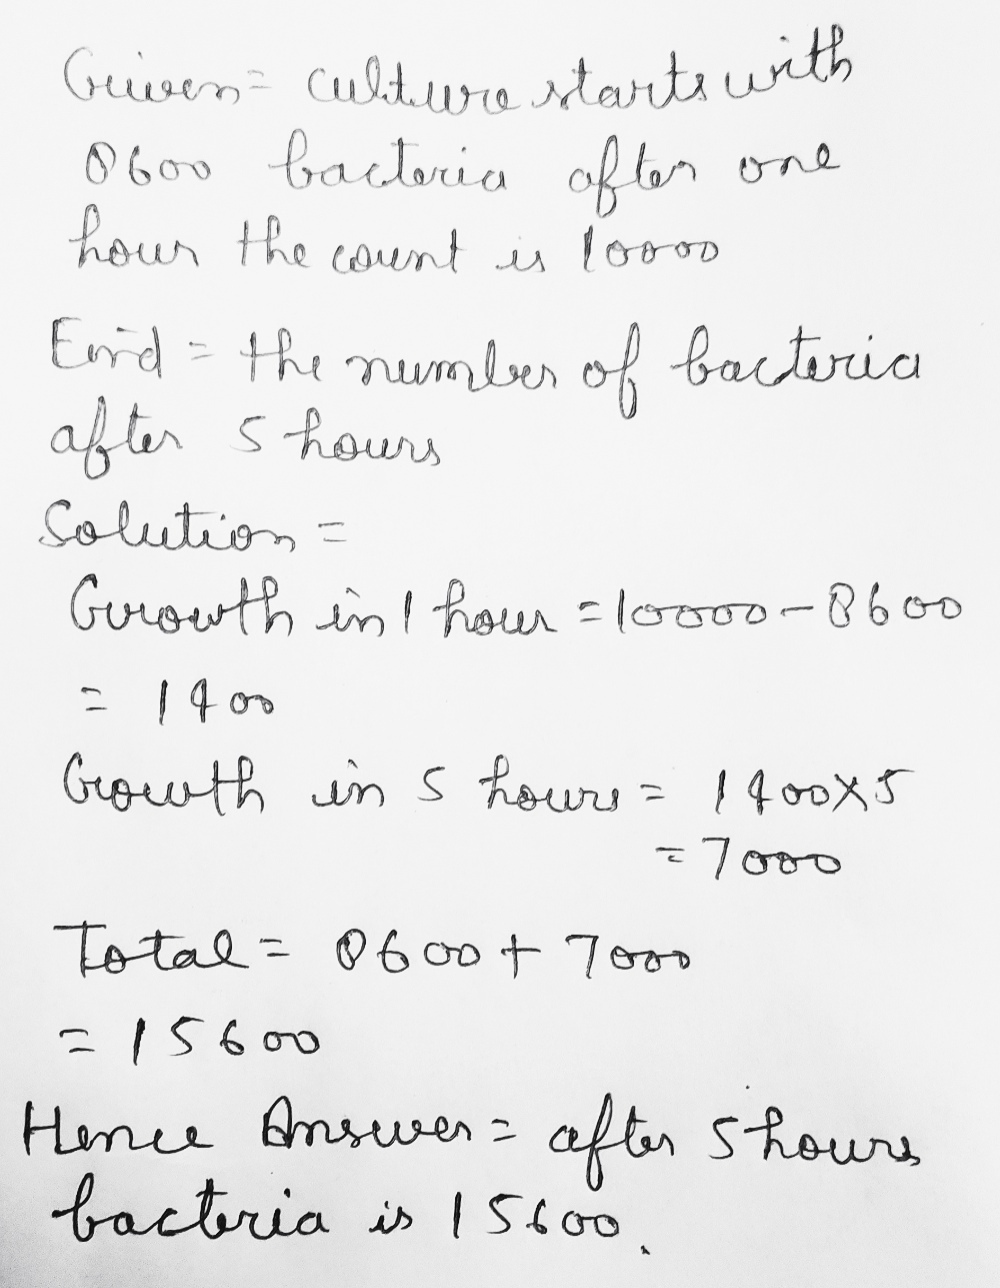 Given = culture starts with
8600 bacteria after one
hour the count is 10000
Find = the number of bacteria
after 5 hours
Solution =
Growth in 1 hour = 10000 - 8600
= 1400
Growth in 5 hours = 1400 × 5
= 7000
Total = 8600 + 7000
= 15600
Hence Answer = after 5 hours
bacteria is 15600.